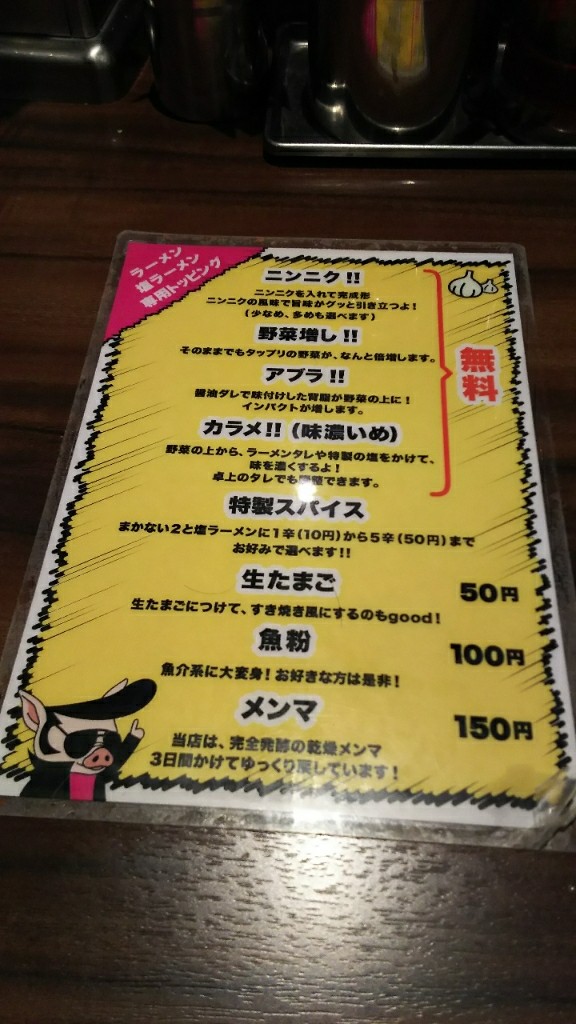 ラーメン
塩ラーメン
専用トッピング
ニンニク!!
ニンニクを入れて完成形
ニンニクの風味で旨味がグッと引き立つよ!
(少なめ、多めも選べます)
野菜増し!!
そのままでもタップリの野菜が、なんと倍増します。
アブラ!!
醤油ダレで味付けした背脂が野菜の上に!
インパクトが増します。
カラメ!!(味濃いめ)
野菜の上から、ラーメンタレや特製の塩をかけて、
味を濃くするよ!
卓上のタレでも調整できます。
無料
特製スパイス
まかない2と塩ラーメンに1辛(10円)から5辛(50円)まで
お好みで選べます!!
生たまご 50円
生たまごにつけて、すき焼き風にするのもgood!
魚粉 100円
魚介系に大変身!お好きな方は是非!
メンマ 150円
当店は、完全発酵の乾燥メンマ
3日間かけてゆっくり戻しています!